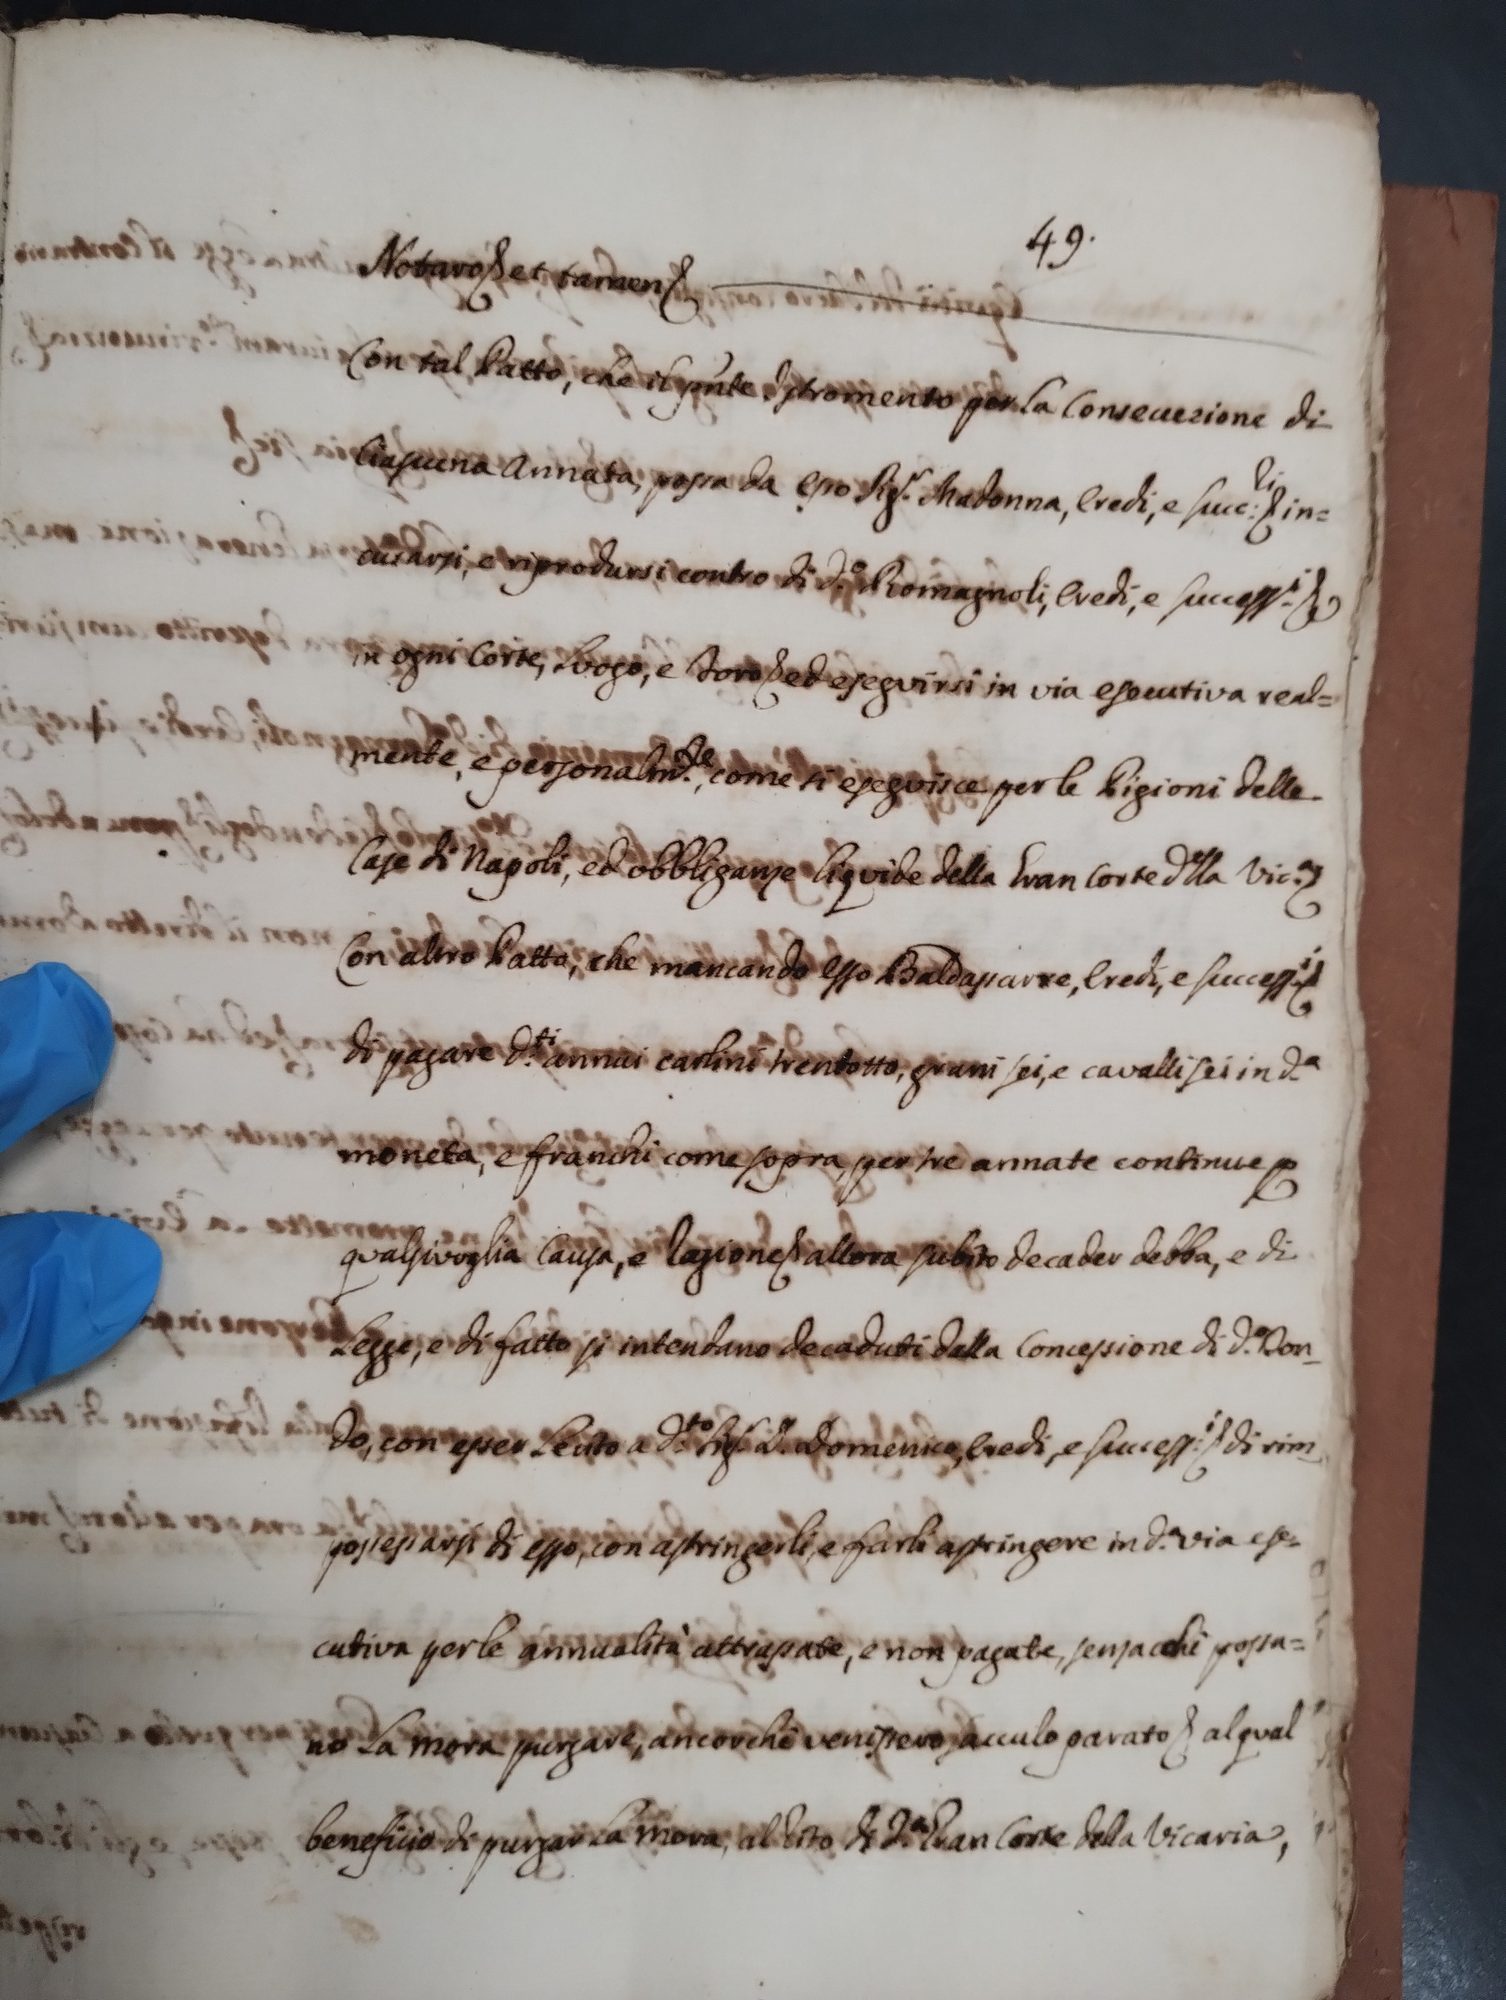 49.
Notaro et tamen
Con tal Patto, che il pnte Istromento per la Consecuzione di
Ciascuna Annata, possa da esso Sig.r Madonna, Eredi, e succ:ri in=
cusarsi, e riprodursi contro di d.o Romagnoli, Eredi, e success.i
in ogni Corte, Luogo, e Foro ed eseguirsi in via esecutiva real=
mente, e personalm.te, come si eseguisce per le Pigioni delle
Case di Napoli, ed obbliganze liquide della Gran Corte della Vic.a
Con altro Patto, che mancando esso Baldassarre, Eredi, e success.i
di pagare d.ti annui carlini trentotto, grani sei, e cavalli sei in d.a
moneta, e franchi come sopra, per tre annate continue p
qualsivoglia Causa, e ragione allora subito decader debba, e di
Legge, e di fatto si intendano decaduti dalla Concessione di d.o Fon=
do, con esser Lecito a d.to Sig.r D. Domenico, Eredi, e success.i di rim=
possessarsi di esso, con astringerli, e farli astringere in d.a via ese=
cutiva per le annualità attrassate, e non pagate, senzacchè possa=
no La mora purgare, ancorchè venissero sacculo parato al qual
beneficio di purgar La mora, al Rito di d.a Gran Corte della Vicaria,